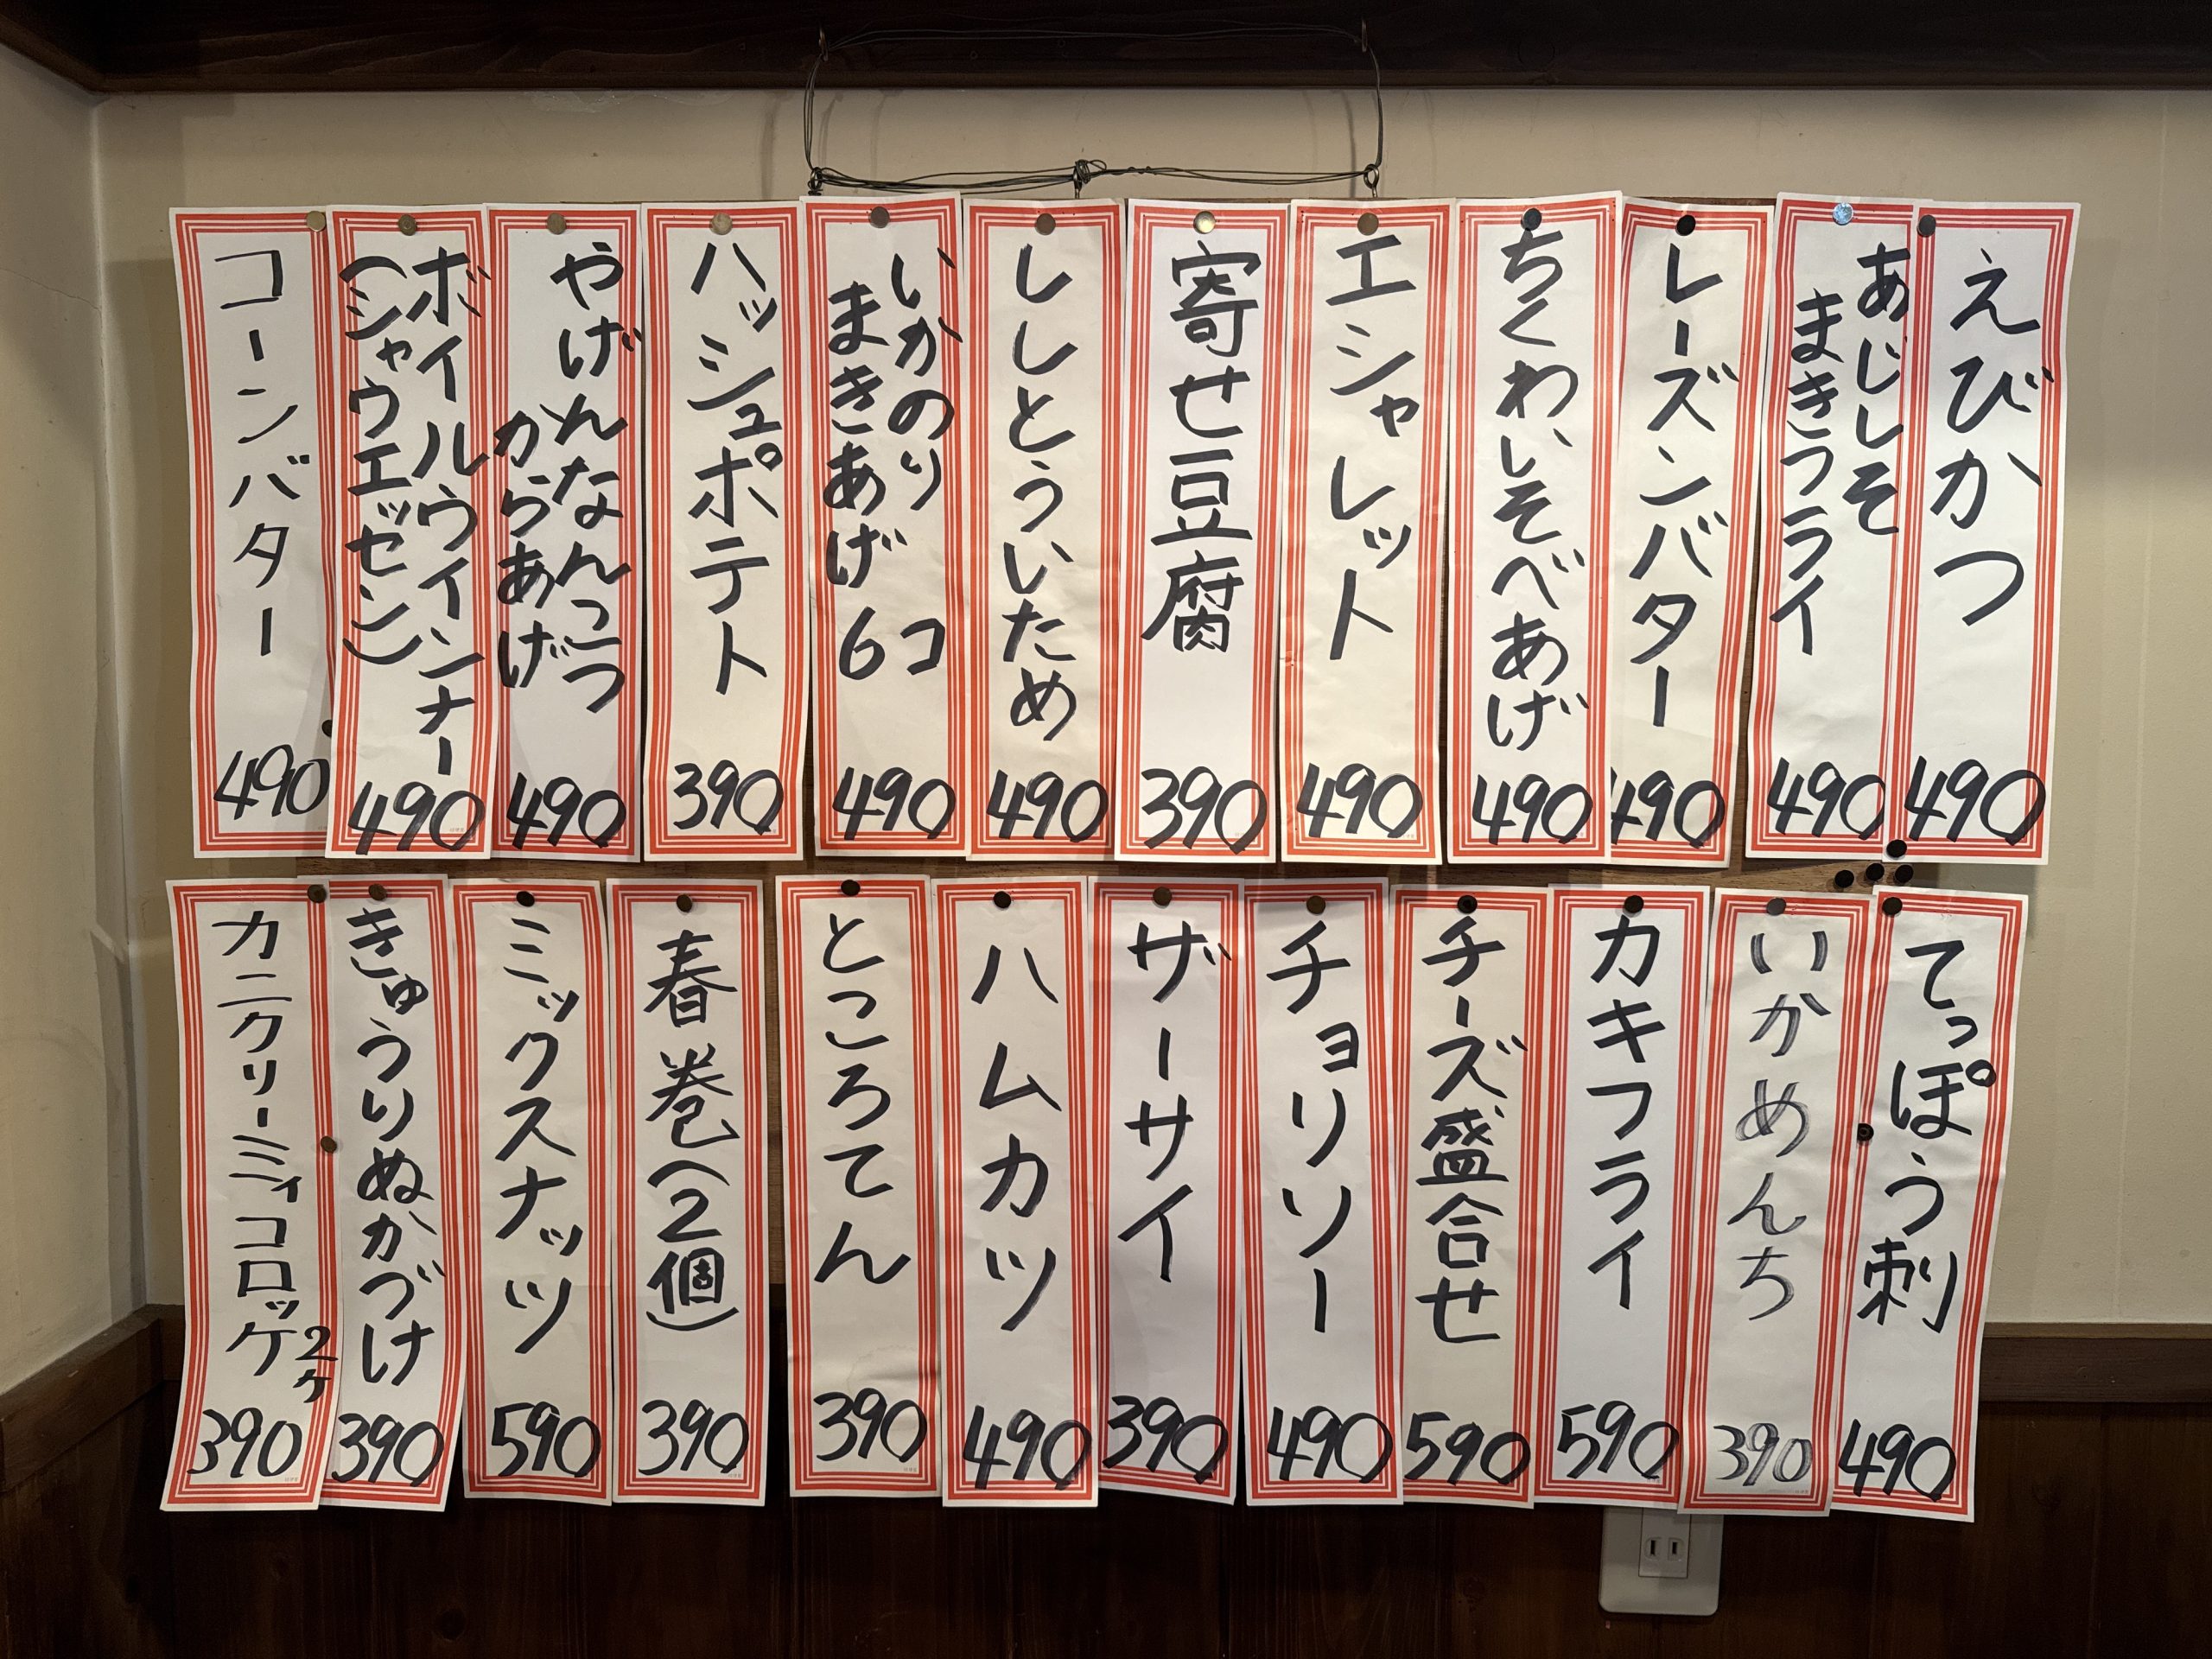 えびかつ
490
あじしそ
まきフライ
490
レーズンバター
490
ちくわ、しそべあげ
490
エシャレット
490
寄せ豆腐
390
ししとういため
490
いかのり
まきあげ6コ
490
ハッシュポテト
390
やげんなんこつ
からあげ
490
ボイルウインナー
(シャウエッセン)
490
コーンバター
490
てっぽう刺
490
いかめんち
390
カキフライ
590
チーズ盛合せ
590
チョリソー
490
ザーサイ
390
ハムカツ
490
ところてん
390
春巻(2個)
390
ミックスナッツ
590
きゅうりぬかづけ
390
カニクリーミィコロッケ2ケ
390